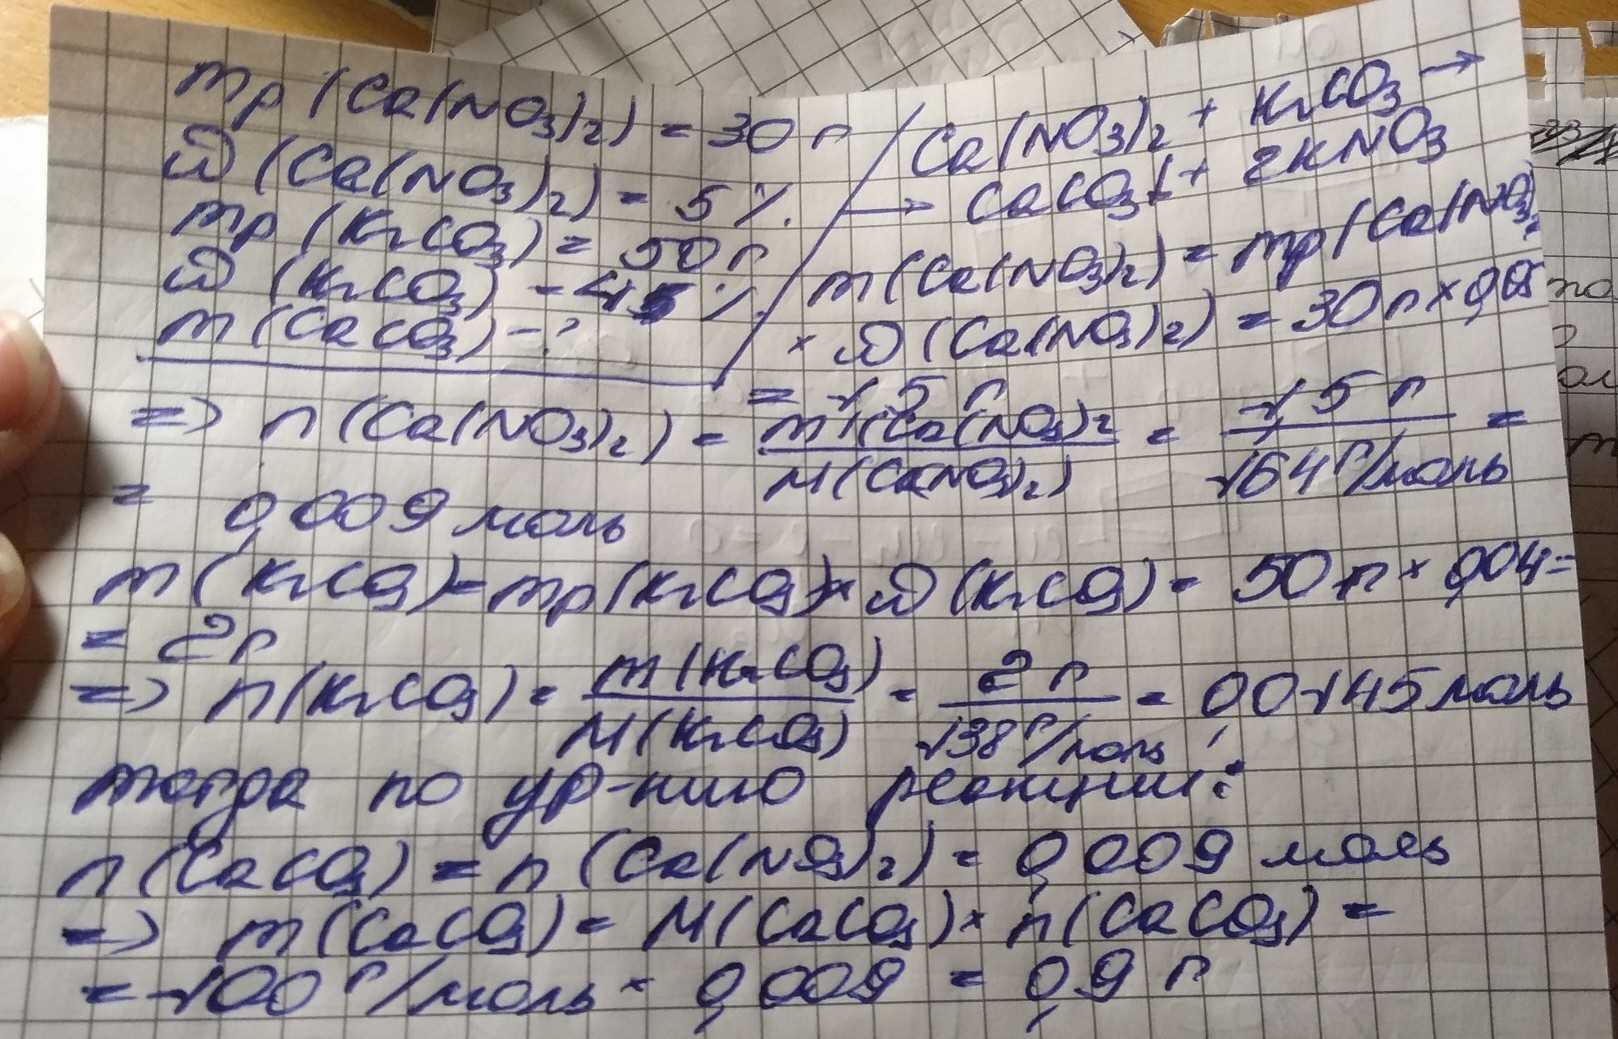 mp (Ca(NO3)2) = 30 г
ω (Ca(NO3)2) = 5 %.
mp (K2CO3) = 50 г
ω (K2CO3) = 4 %.
m (CaCO3) - ?
Ca(NO3)2 + K2CO3 →
→ CaCO3↓ + 2KNO3
m (Ca(NO3)2) = mp (Ca(NO3)2
× ω (Ca(NO3)2) = 30 г × 0,05
= 1,5 г
=> n (Ca(NO3)2) = m (Ca(NO3)2 / M (CaNO3)2) = 1,5 г / 164 г/моль =
= 0,009 моль
m (K2CO3) = mp (K2CO3) × ω (K2CO3) = 50 г × 0,04 =
= 2 г
=> n (K2CO3) = m (K2CO3) / M (K2CO3) = 2 г / 138 г/моль = 0,0145 моль
тогда по ур-нию реакции:
n (CaCO3) = n (Ca(NO3)2) = 0,009 моль
=> m (CaCO3) = M (CaCO3) × n (CaCO3) =
= 100 г/моль × 0,009 = 0,9 г